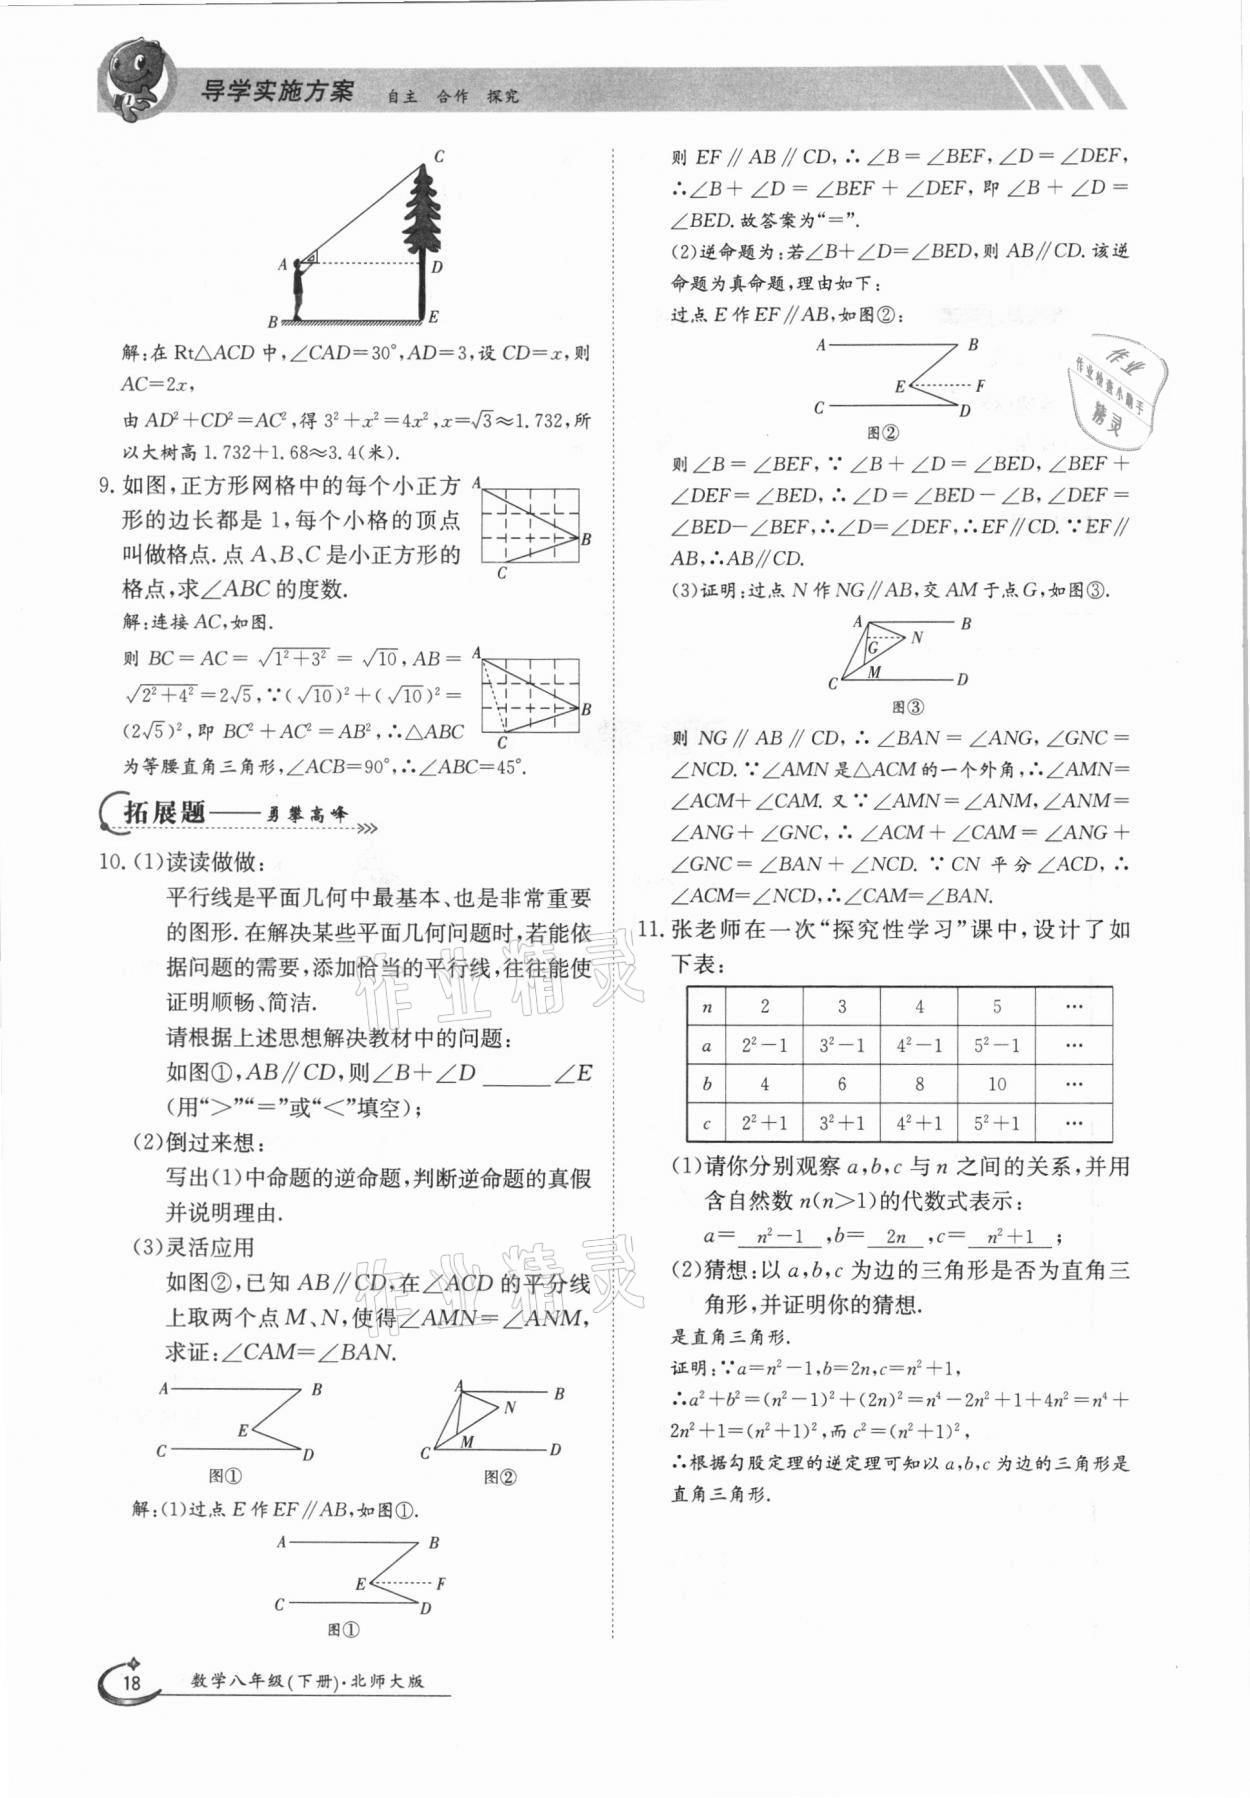 导学实施方案 自主 合作 探究
C
A
D
B
E
解:在Rt△ACD中,∠CAD=30°,AD=3,设CD=x,则
AC=2x,
由AD²+CD²=AC²,得3²+x²=4x²,x=√3≈1.732,所
以大树高1.732+1.68≈3.4(米).
9. 如图,正方形网格中的每个小正方
形的边长都是1,每个小格的顶点
叫做格点.点A、B、C是小正方形的
格点,求∠ABC的度数.
A
B
C
解:连接AC,如图.
则BC=AC=√(1²+3²)=√10,AB=
√(2²+4²)=2√5,∵(√10)²+(√10)²=
(2√5)²,即BC²+AC²=AB²,∴△ABC
为等腰直角三角形,∠ACB=90°,∴∠ABC=45°.
A
B
C
拓展题——勇攀高峰
10. (1)读读做做:
平行线是平面几何中最基本、也是非常重要
的图形.在解决某些平面几何问题时,若能依
据问题的需要,添加恰当的平行线,往往能使
证明顺畅、简洁.
请根据上述思想解决教材中的问题:
如图①,AB∥CD,则∠B+∠D ______ ∠E
(用“>”“=”或“<”填空);
(2)倒过来想:
写出(1)中命题的逆命题,判断逆命题的真假
并说明理由.
(3)灵活应用
如图②,已知AB∥CD,在∠ACD的平分线
上取两个点M、N,使得∠AMN=∠ANM,
求证:∠CAM=∠BAN.
A B
E
C D
图①
A B
N
M
C D
图②
解:(1)过点E作EF∥AB,如图①.
A B
E F
C D
图①
则EF∥AB∥CD,∴∠B=∠BEF,∠D=∠DEF,
∴∠B+∠D=∠BEF+∠DEF,即∠B+∠D=
∠BED.故答案为“=”.
(2)逆命题为:若∠B+∠D=∠BED,则AB∥CD.该逆
命题为真命题,理由如下:
过点E作EF∥AB,如图②:
A B
E F
C D
图②
则∠B=∠BEF,∵∠B+∠D=∠BED,∠BEF+
∠DEF=∠BED,∴∠D=∠BED-∠B,∠DEF=
∠BED-∠BEF,∴∠D=∠DEF,∴EF∥CD.∵EF∥
AB,∴AB∥CD.
(3)证明:过点N作NG∥AB,交AM于点G,如图③.
A B
N
G
M
C D
图③
则NG∥AB∥CD,∴∠BAN=∠ANG,∠GNC=
∠NCD.∵∠AMN是△ACM的一个外角,∴∠AMN=
∠ACM+∠CAM.又∵∠AMN=∠ANM,∠ANM=
∠ANG+∠GNC,∴∠ACM+∠CAM=∠ANG+
∠GNC=∠BAN+∠NCD.∵CN平分∠ACD,∴
∠ACM=∠NCD,∴∠CAM=∠BAN.
11. 张老师在一次“探究性学习”课中,设计了如
下表:
n 2 3 4 5 …
a 2²-1 3²-1 4²-1 5²-1 …
b 4 6 8 10 …
c 2²+1 3²+1 4²+1 5²+1 …
(1)请你分别观察a,b,c与n之间的关系,并用
含自然数n(n>1)的代数式表示:
a= n²-1 ,b= 2n ,c= n²+1 ;
(2)猜想:以a,b,c为边的三角形是否为直角三
角形,并证明你的猜想.
是直角三角形.
证明:∵a=n²-1,b=2n,c=n²+1,
∴a²+b²=(n²-1)²+(2n)²=n⁴-2n²+1+4n²=n⁴+
2n²+1=(n²+1)²,而c²=(n²+1)²,
∴根据勾股定理的逆定理可知以a,b,c为边的三角形是
直角三角形.
作业
作业检查小助手
精灵
作业精灵
作业精灵
18 数学八年级(下册)·北师大版